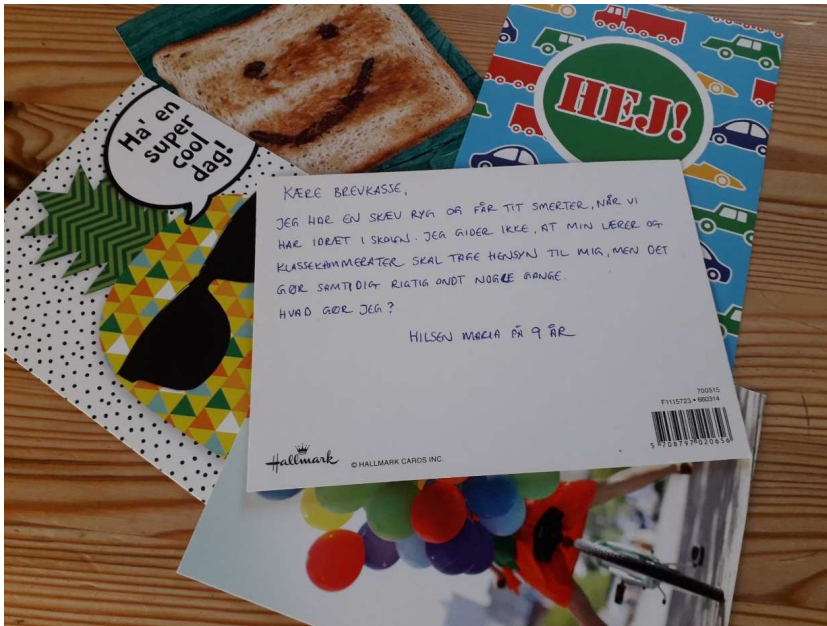 Ha' en
super
cool
dag!
HEJ!
KÆRE BREVKASSE,
JEG HAR EN SKÆV RYG OG FÅR TIT SMERTER, NÅR VI
HAR IDRÆT I SKOLEN. JEG GIDER IKKE, AT MIN LÆRER OG
KLASSEKAMMERATER SKAL TAGE HENSYN TIL MIG, MEN DET
GØR SAMTIDIG RIGTIG ONDT NOGLE GANGE.
HVAD GØR JEG?
HILSEN MARIA PÅ 9 ÅR
700315
F1115723 • 660314
5 708797 020656
Hallmark © HALLMARK CARDS INC.